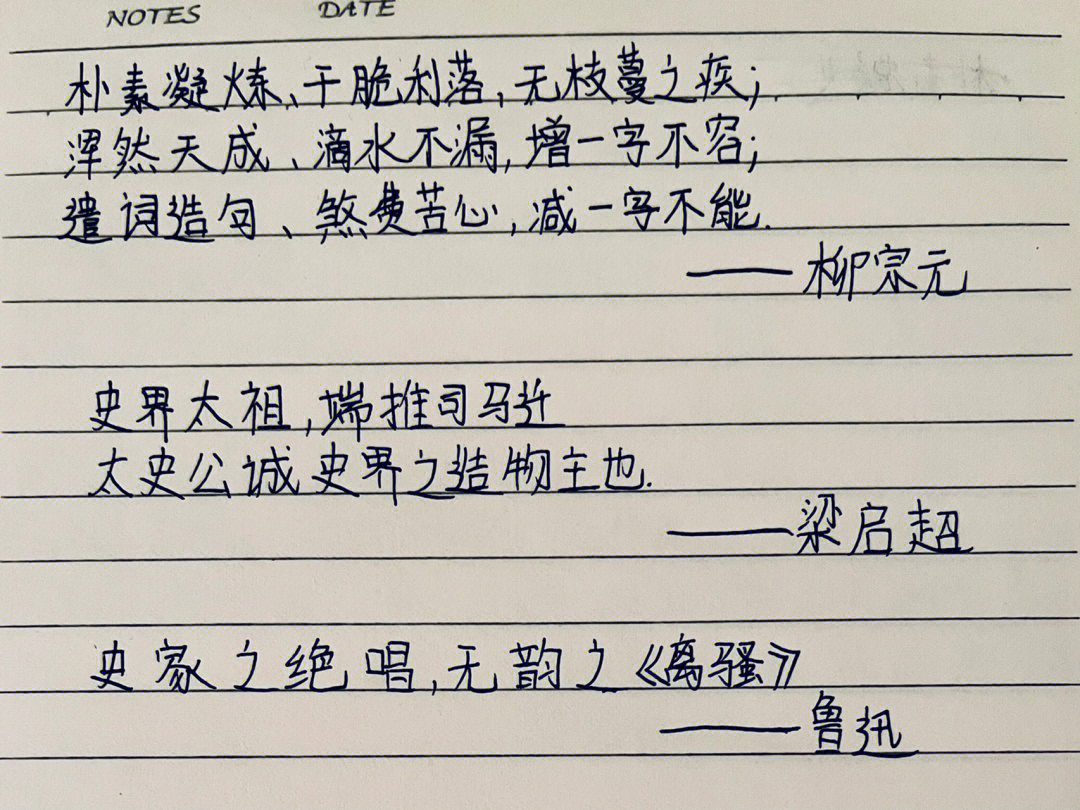 NOTES DATE
朴素凝炼、干脆利落,无枝蔓之疾;
浑然天成、滴水不漏,增一字不容;
遣词造句、煞费苦心,减一字不能.
——柳宗元
史界太祖,端推司马迁
太史公诚史界之造物主也.
——梁启超
史家之绝唱,无韵之《离骚》
——鲁迅